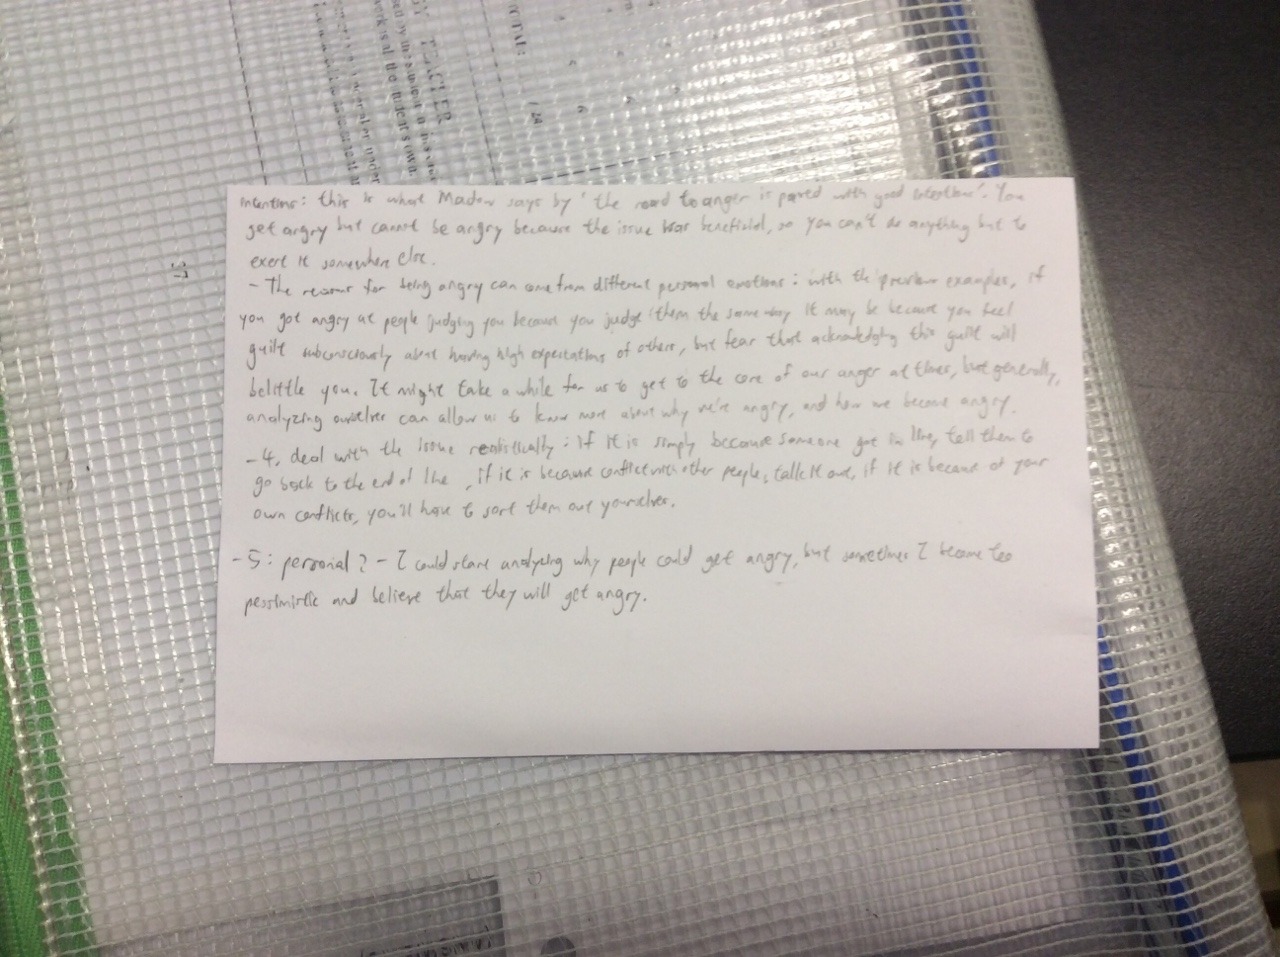 TOTAL: /24
intentions: this is what Madow says by 'the road to anger is paved with good intentions'. You
get angry but cannot be angry because the issue was beneficial, so you can't do anything but to
exert it somewhere else.
- The reasons for being angry can come from different personal emotions: with the previous examples, if
you got angry at people judging you because you judge them the same way it may be because you feel
guilt subconsciously about having high expectations of others, but fear that acknowledging this guilt will
belittle you. It might take a while for us to get to the core of our anger at times, but generally,
analyzing ourselves can allow us to know more about why we're angry, and how we become angry.
- 4, deal with the issue realistically: If it is simply because someone got in line, tell them to
go back to the end of line, if it is because conflict with other people, talk it out, if it is because of your
own conflicts, you'll have to sort them out yourselves.
- 5: personal? - I could start analyzing why people could get angry, but sometimes I become too
pessimistic and believe that they will get angry.